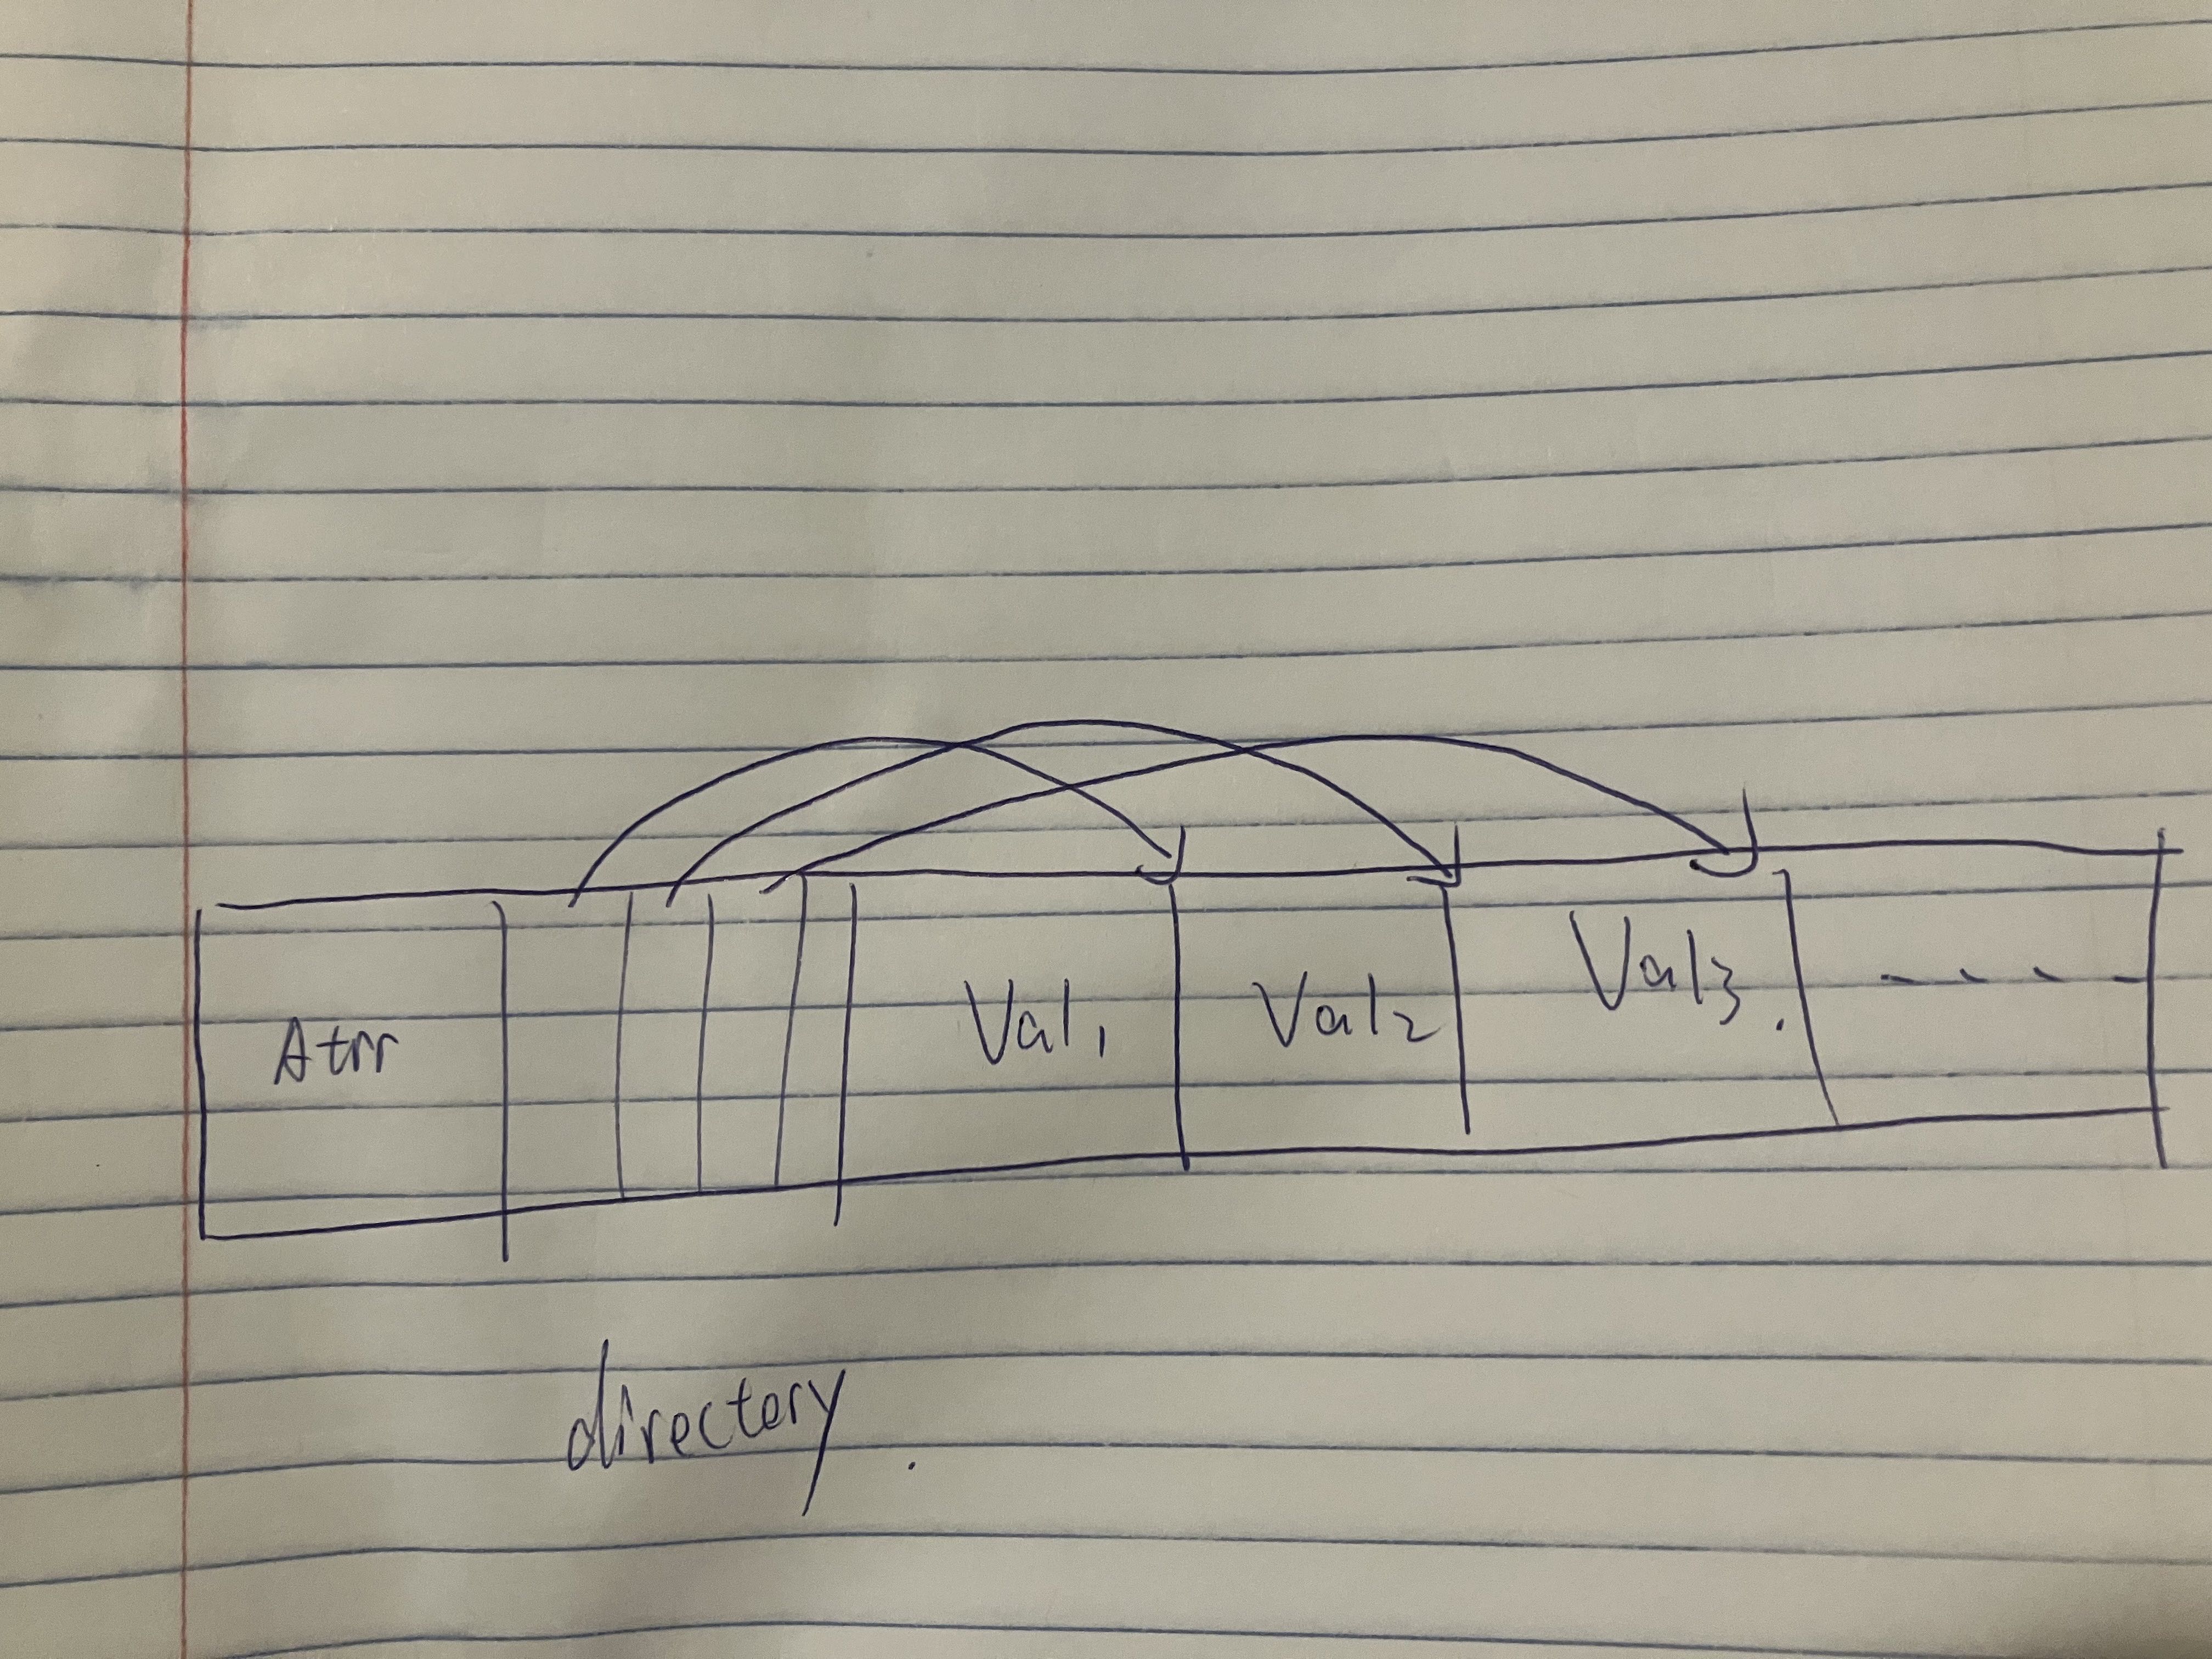 Atrr Val1 Val2 Val3. ----
directory.